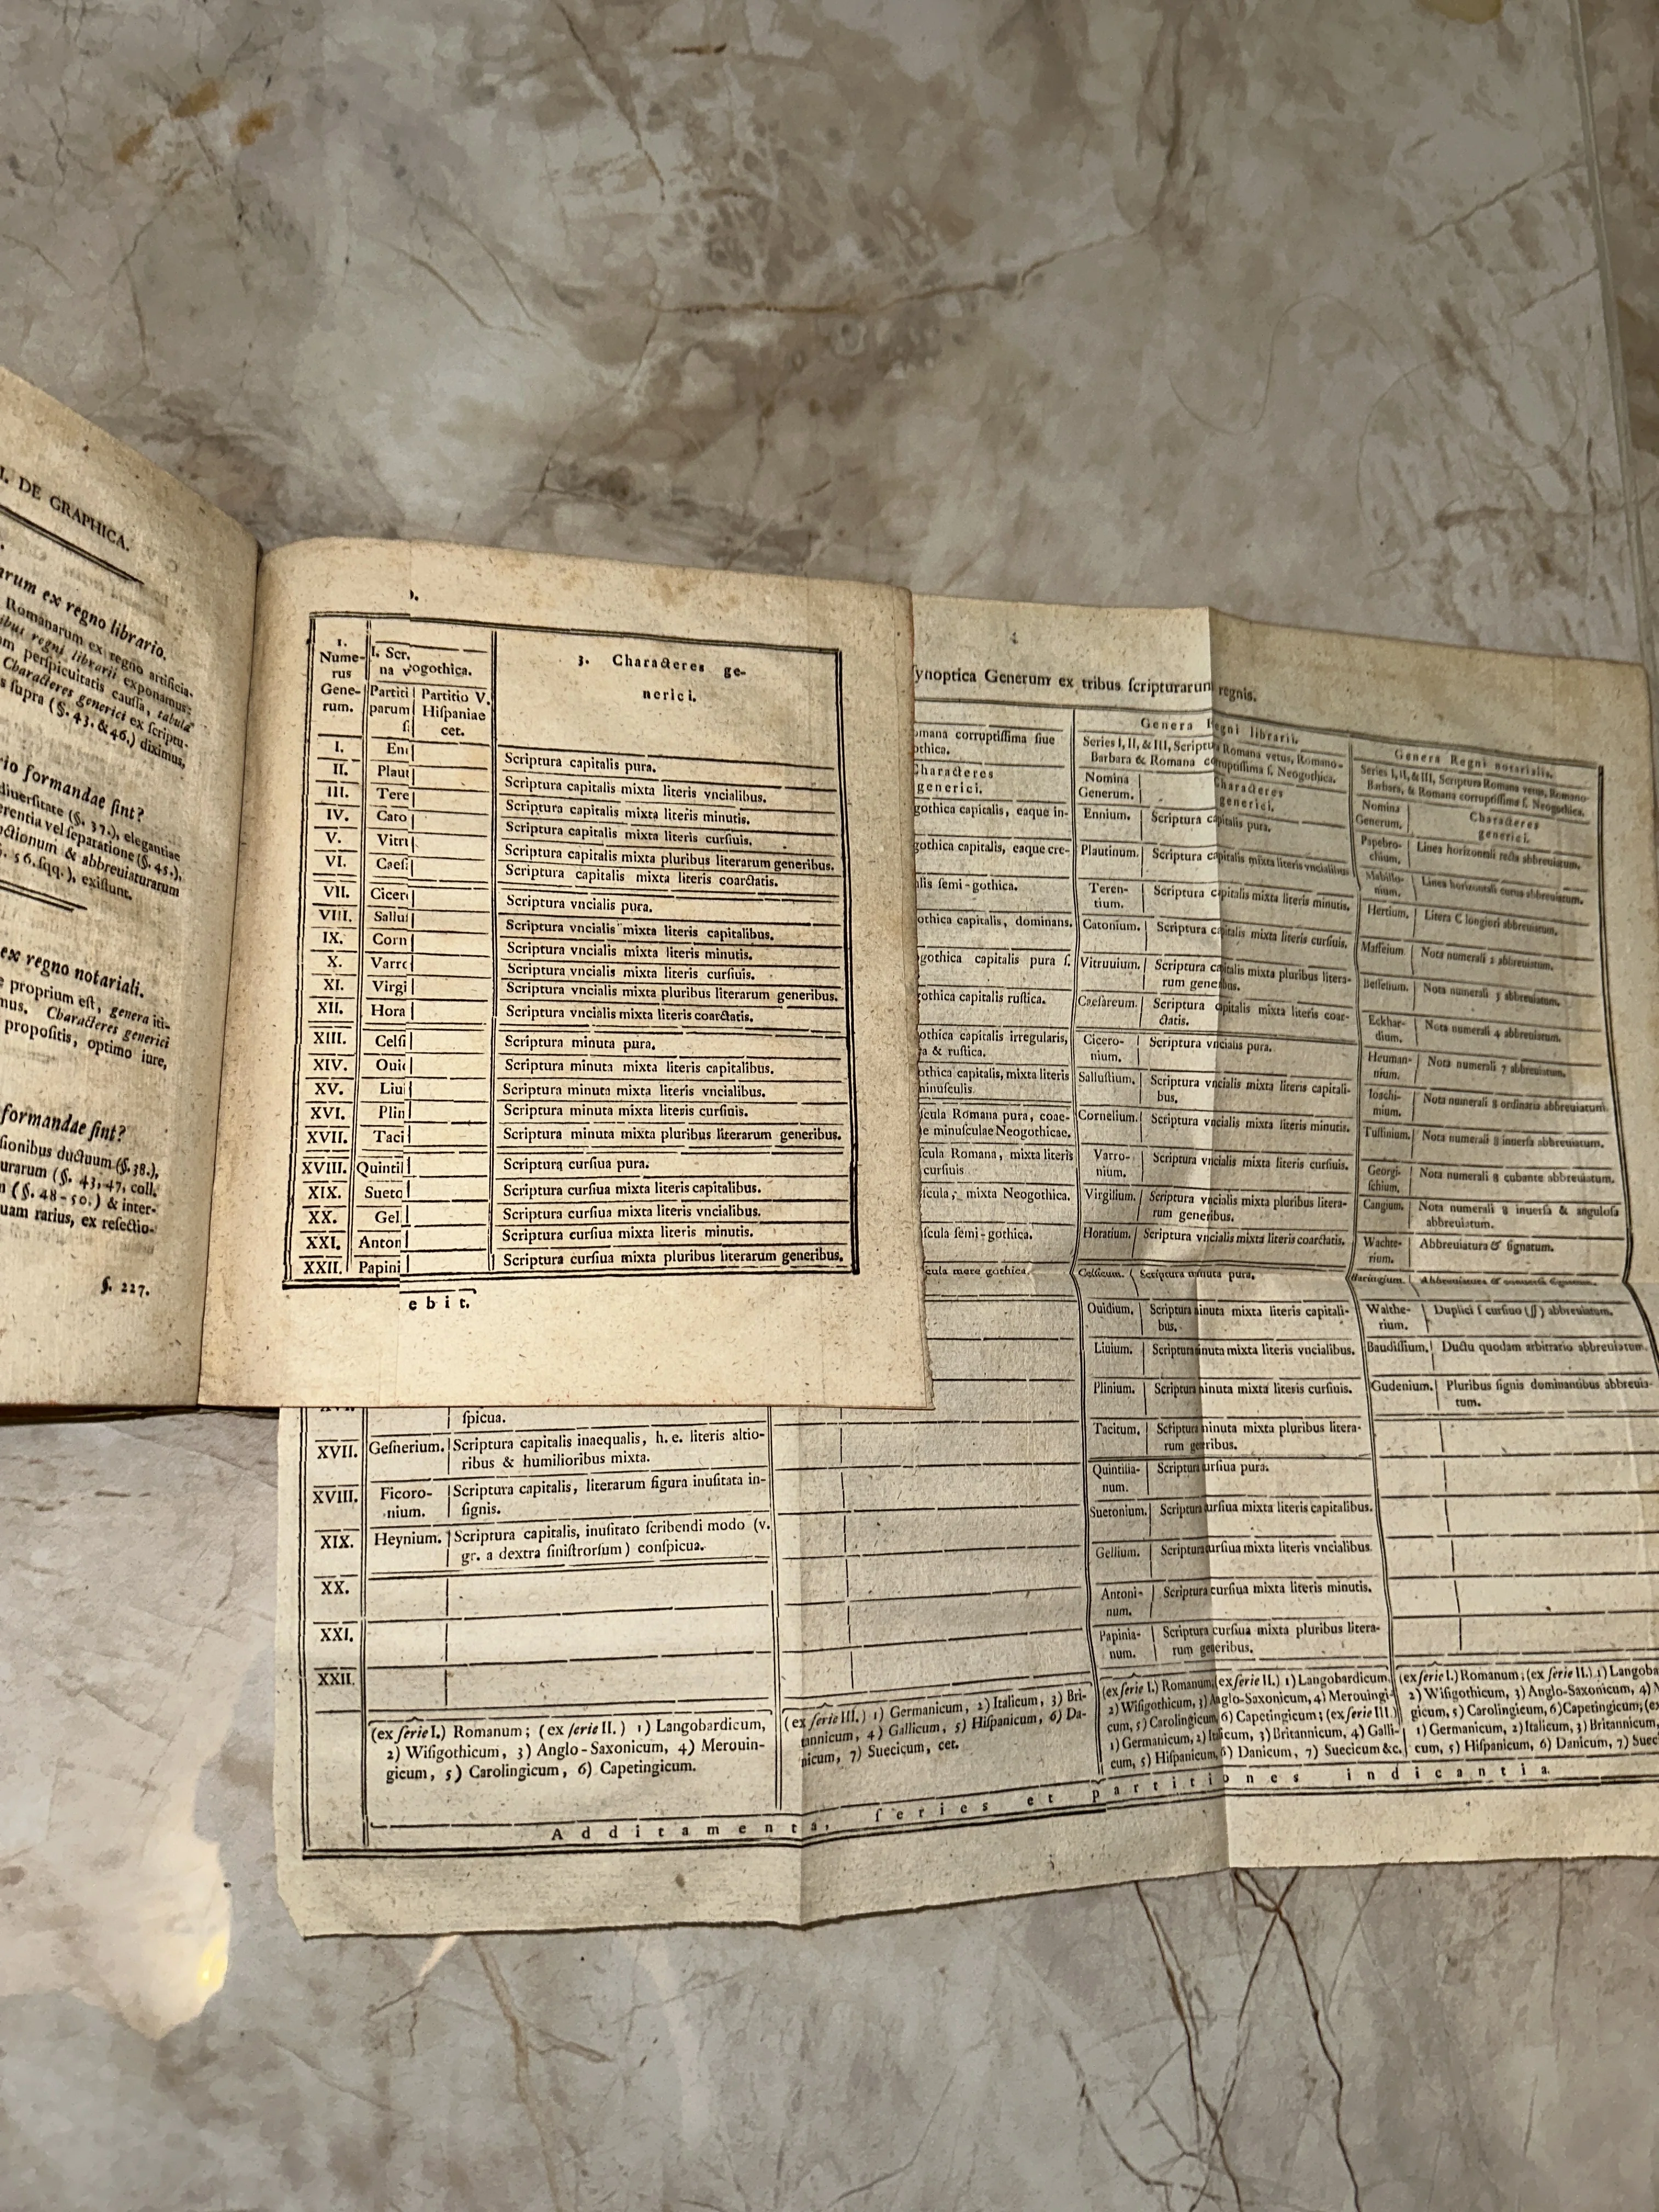 I. DE GRAPHICA.
arum ex regno librario.
Romanarum ex regno artificia-
ibus regni librarii exponamus:
m perſpicuitatis cauſſa, tabula
Characteres generici ex ſcriptu-
s ſupra (§. 43. & 46.) diximus,
rio formandae ſint?
diuerſitate (§. 37.), elegantiae
erentia vel ſeparatione (§. 45.),
ctionum & abbreuiaturarum
§. 56. ſqq.), exiſtunt.
ex regno notariali.
e proprium eſt, genera iti-
mus. Characteres generici
propoſitis, optimo iure,
formandae ſint?
ſionibus ductuum (§. 38.),
urarum (§. 43, 47, coll.
n (§. 48-50.) & inter-
uam rarius, ex reſectio-
§. 227.
1. Nume-rus Gene-rum.
I. Scr.
na vogothica.
Partiti
parum
Partitio V.
Hiſpaniae
cet.
3. Characteres ge-
nerici.
I. En Scriptura capitalis pura.
II. Plaut Scriptura capitalis mixta literis vncialibus.
III. Tere Scriptura capitalis mixta literis minutis.
IV. Cato Scriptura capitalis mixta literis curſiuis.
V. Vitru Scriptura capitalis mixta pluribus literarum generibus.
VI. Caeſ Scriptura capitalis mixta literis coarctatis.
VII. Cicer Scriptura vncialis pura.
VIII. Sallu Scriptura vncialis mixta literis capitalibus.
IX. Corn Scriptura vncialis mixta literis minutis.
X. Varr Scriptura vncialis mixta literis curſiuis.
XI. Virgi Scriptura vncialis mixta pluribus literarum generibus.
XII. Hora Scriptura vncialis mixta literis coarctatis.
XIII. Celſi Scriptura minuta pura.
XIV. Oui Scriptura minuta mixta literis capitalibus.
XV. Liu Scriptura minuta mixta literis vncialibus.
XVI. Plin Scriptura minuta mixta literis curſiuis.
XVII. Taci Scriptura minuta mixta pluribus literarum generibus.
XVIII. Quintil Scriptura curſiua pura.
XIX. Sueto Scriptura curſiua mixta literis capitalibus.
XX. Gel Scriptura curſiua mixta literis vncialibus.
XXI. Anton Scriptura curſiua mixta literis minutis.
XXII. Papini Scriptura curſiua mixta pluribus literarum generibus.
ebit.
ynoptica Generum ex tribus ſcripturarum regnis.
omana corruptiſſima ſiue
othica.
Characteres
generici.
gothica capitalis, eaque in-
gothica capitalis, eaque cre-
alis ſemi-gothica.
othica capitalis, dominans.
gothica capitalis pura ſ.
gothica capitalis ruſtica.
othica capitalis irregularis,
a & ruſtica.
othica capitalis, mixta literis
minuſculis.
ſcula Romana pura, coae-
e minuſculae Neogothicae.
ſcula Romana, mixta literis
curſiuis
ſcula, mixta Neogothica.
ſcula ſemi-gothica.
cula mere gothica.
Genera Regni librarii.
Series I, II, & III, Scriptura Romana vetus, Romano-
Barbara & Romana corruptiſſima ſ. Neogothica.
Nomina
Generum.
Characteres
generici.
Ennium. Scriptura capitalis pura.
Plautinum. Scriptura capitalis mixta literis vncialibus
Teren-
tium. Scriptura capitalis mixta literis minutis.
Catonium. Scriptura capitalis mixta literis curſiuis.
Vitruuium. Scriptura capitalis mixta pluribus litera-
rum generibus.
Caeſareum. Scriptura capitalis mixta literis coar-
ctatis.
Cicero-
nium. Scriptura vncialis pura.
Salluſtium. Scriptura vncialis mixta literis capitali-
bus.
Cornelium. Scriptura vncialis mixta literis minutis.
Varro-
nium. Scriptura vncialis mixta literis curſiuis.
Virgilium. Scriptura vncialis mixta pluribus litera-
rum generibus.
Horatium. Scriptura vncialis mixta literis coarctatis.
Celſicum. Scriptura minuta pura.
Ouidium. Scriptura minuta mixta literis capitali-
bus.
Liuium. Scriptura minuta mixta literis vncialibus.
Plinium. Scriptura minuta mixta literis curſiuis.
Tacitum. Scriptura minuta mixta pluribus litera-
rum generibus.
Quintilia-
num. Scriptura curſiua pura.
Suetonium. Scriptura curſiua mixta literis capitalibus.
Gellium. Scriptura curſiua mixta literis vncialibus.
Antoni-
num. Scriptura curſiua mixta literis minutis.
Papinia-
num. Scriptura curſiua mixta pluribus litera-
rum generibus.
Genera Regni notarialis.
Series I, II, & III, Scriptura Romana vetus, Romano
Barbara, & Romana corruptiſſima ſ. Neogothica.
Nomina
Generum.
Characteres
generici.
Papebro-
chium. Linea horizontali recta abbreuiatum.
Mabillo-
nium. Linea horizontali curua abbreuiatum.
Hertium. Litera C longiori abbreuiatum.
Maffeium. Nota numerali 2 abbreuiatum.
Beſſelium. Nota numerali 3 abbreuiatum.
Eckhar-
dium. Nota numerali 4 abbreuiatum.
Heuman-
nium. Nota numerali 7 abbreuiatum.
Ioachi-
mium. Nota numerali 8 ordinaria abbreuiatum.
Tuſtinium. Nota numerali 8 inuerſa abbreuiatum.
Georgi-
ſchium. Nota numerali 8 cubante abbreuiatum.
Cangium. Nota numerali 8 inuerſa & anguloſa
abbreuiatum.
Wachte-
rium. Abbreuiatura & ſignatum.
Baringium.
Walthe-
rium. Duplici ſ curſiuo (ſſ) abbreuiatum.
Baudiſſium. Ductu quodam arbitrario abbreuiatum.
Gudenium. Pluribus ſignis dominantibus abbreuia-
tum.
ſpicua.
XVII. Geſnerium. Scriptura capitalis inaequalis, h. e. literis altio-
ribus & humilioribus mixta.
XVIII. Ficoro-
nium. Scriptura capitalis, literarum figura inuſitata in-
ſignis.
XIX. Heynium. Scriptura capitalis, inuſitato ſcribendi modo (v.
gr. a dextra ſiniſtrorſum) conſpicua.
XX.
XXI.
XXII.
(ex ſerie I.) Romanum; (ex ſerie II.) 1) Langobardicum,
2) Wiſigothicum, 3) Anglo-Saxonicum, 4) Merouin-
gicum, 5) Carolingicum, 6) Capetingicum.
(ex ſerie III.) 1) Germanicum, 2) Italicum, 3) Bri-
tannicum, 4) Gallicum, 5) Hiſpanicum, 6) Da-
nicum, 7) Suecicum, cet.
(ex ſerie I.) Romanum, (ex ſerie II.) 1) Langobardicum,
2) Wiſigothicum, 3) Anglo-Saxonicum, 4) Merouingi-
cum, 5) Carolingicum, 6) Capetingicum; (ex ſerie III.)
1) Germanicum, 2) Italicum, 3) Britannicum, 4) Galli-
cum, 5) Hiſpanicum, 6) Danicum, 7) Suecicum &c.
(ex ſerie I.) Romanum; (ex ſerie II.) 1) Langoba
2) Wiſigothicum, 3) Anglo-Saxonicum, 4) M
gicum, 5) Carolingicum, 6) Capetingicum; (ex
1) Germanicum, 2) Italicum, 3) Britannicum,
cum, 5) Hiſpanicum, 6) Danicum, 7) Suec
Additamenta, ſeries et partitiones indicantia.